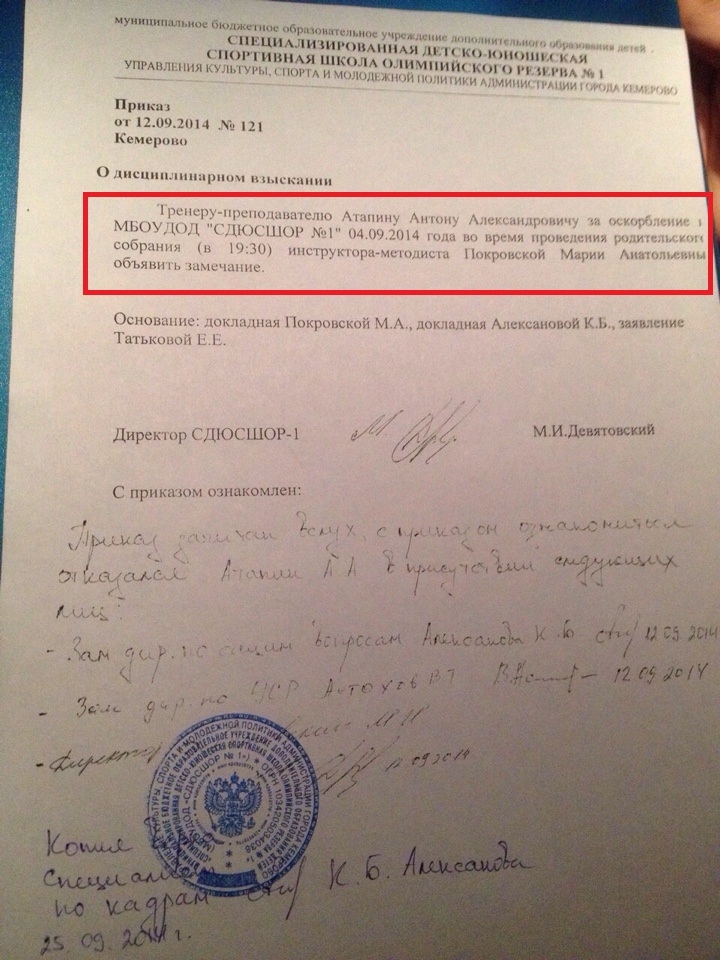 муниципальное бюджетное образовательное учреждение дополнительного образования детей
СПЕЦИАЛИЗИРОВАННАЯ ДЕТСКО-ЮНОШЕСКАЯ
СПОРТИВНАЯ ШКОЛА ОЛИМПИЙСКОГО РЕЗЕРВА № 1
УПРАВЛЕНИЯ КУЛЬТУРЫ, СПОРТА И МОЛОДЕЖНОЙ ПОЛИТИКИ АДМИНИСТРАЦИИ ГОРОДА КЕМЕРОВО
Приказ
от 12.09.2014 № 121
Кемерово
О дисциплинарном взыскании
Тренеру-преподавателю Атапину Антону Александровичу за оскорбление
МБОУДОД "СДЮСШОР №1" 04.09.2014 года во время проведения родительского
собрания (в 19:30) инструктора-методиста Покровской Марии Анатольевны
объявить замечание.
Основание: докладная Покровской М.А., докладная Алексановой К.Б., заявление
Татьковой Е.Е.
Директор СДЮСШОР-1 М.И.Девятовский
С приказом ознакомлен:
Приказ зачитан вслух, с приказом ознакомиться
отказался Атапин А.А в присутствии следующих
лиц:
- Зам дир. по общим вопросам Алексанова К.Б. 12.09.2014
- Зам. дир. по УСР Антохов В.Т. 12.09.2014
- Директор М.И 09.2014
КУЛЬТУРЫ, СПОРТА И МОЛОДЕЖНОЙ ПОЛИТИКИ АДМИНИСТРАЦИИ ГОРОДА КЕМЕРОВО
МБОУДОД «СДЮСШОР № 1»
Копия
Специалист
по кадрам К.Б. Алексанова
25.09.2014г.